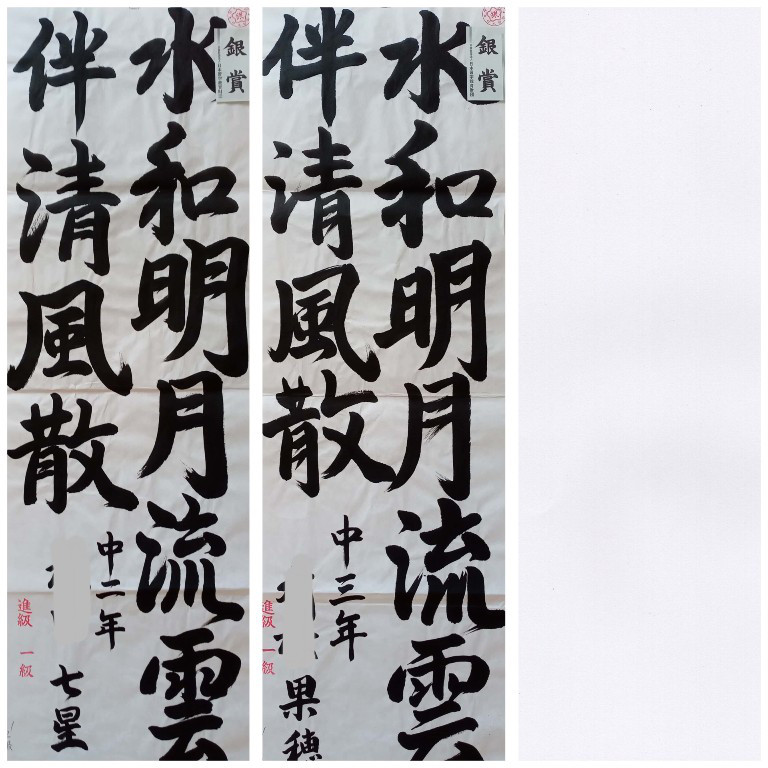 水和明月流雲
伴清風散
中二年
七星
銀賞
進級 一級
水和明月流雲
伴清風散
中三年
果穂
銀賞
進級 一級